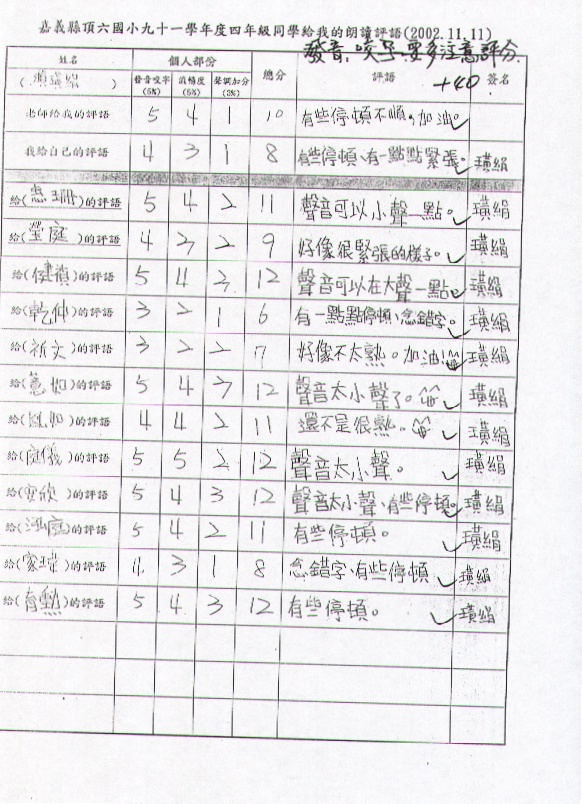 嘉義縣頂六國小九十一學年度四年級同學給我的朗讀評語(2002.11.11)
發音、咬字要多注意評分
+40
姓名 個人部份 總分 評語 簽名
發音咬字(5%) 流暢度(5%) 聲調加分(3%)
老師給我的評語 5 4 1 10 有些停頓不順,加油。
我給自己的評語 4 3 1 8 有些停頓、有一點點緊張。 璜絹
給(惠珊)的評語 5 4 2 11 聲音可以小聲一點。 璜絹
給(瑩庭)的評語 4 3 2 9 好像很緊張的樣子。 璜絹
給(健禎)的評語 5 4 3 12 聲音可以在大聲一點。 璜絹
給(乾坤)的評語 3 2 1 6 有一點點停頓、念錯字。 璜絹
給(祈文)的評語 3 2 2 7 好像不太熟。加油! 璜絹
給(蕙如)的評語 5 4 3 12 聲音太小聲了。 璜絹
給( 如)的評語 4 4 2 11 還不是很熟。 璜絹
給(庭儀)的評語 5 5 2 12 聲音太小聲。 璜絹
給(宛欣)的評語 5 4 3 12 聲音太小聲、有些停頓。 璜絹
給( 庭)的評語 5 4 2 11 有些停頓。 璜絹
給(家瑋)的評語 4 3 1 8 念錯字、有些停頓 璜絹
給(育勳)的評語 5 4 3 12 有些停頓。 璜絹